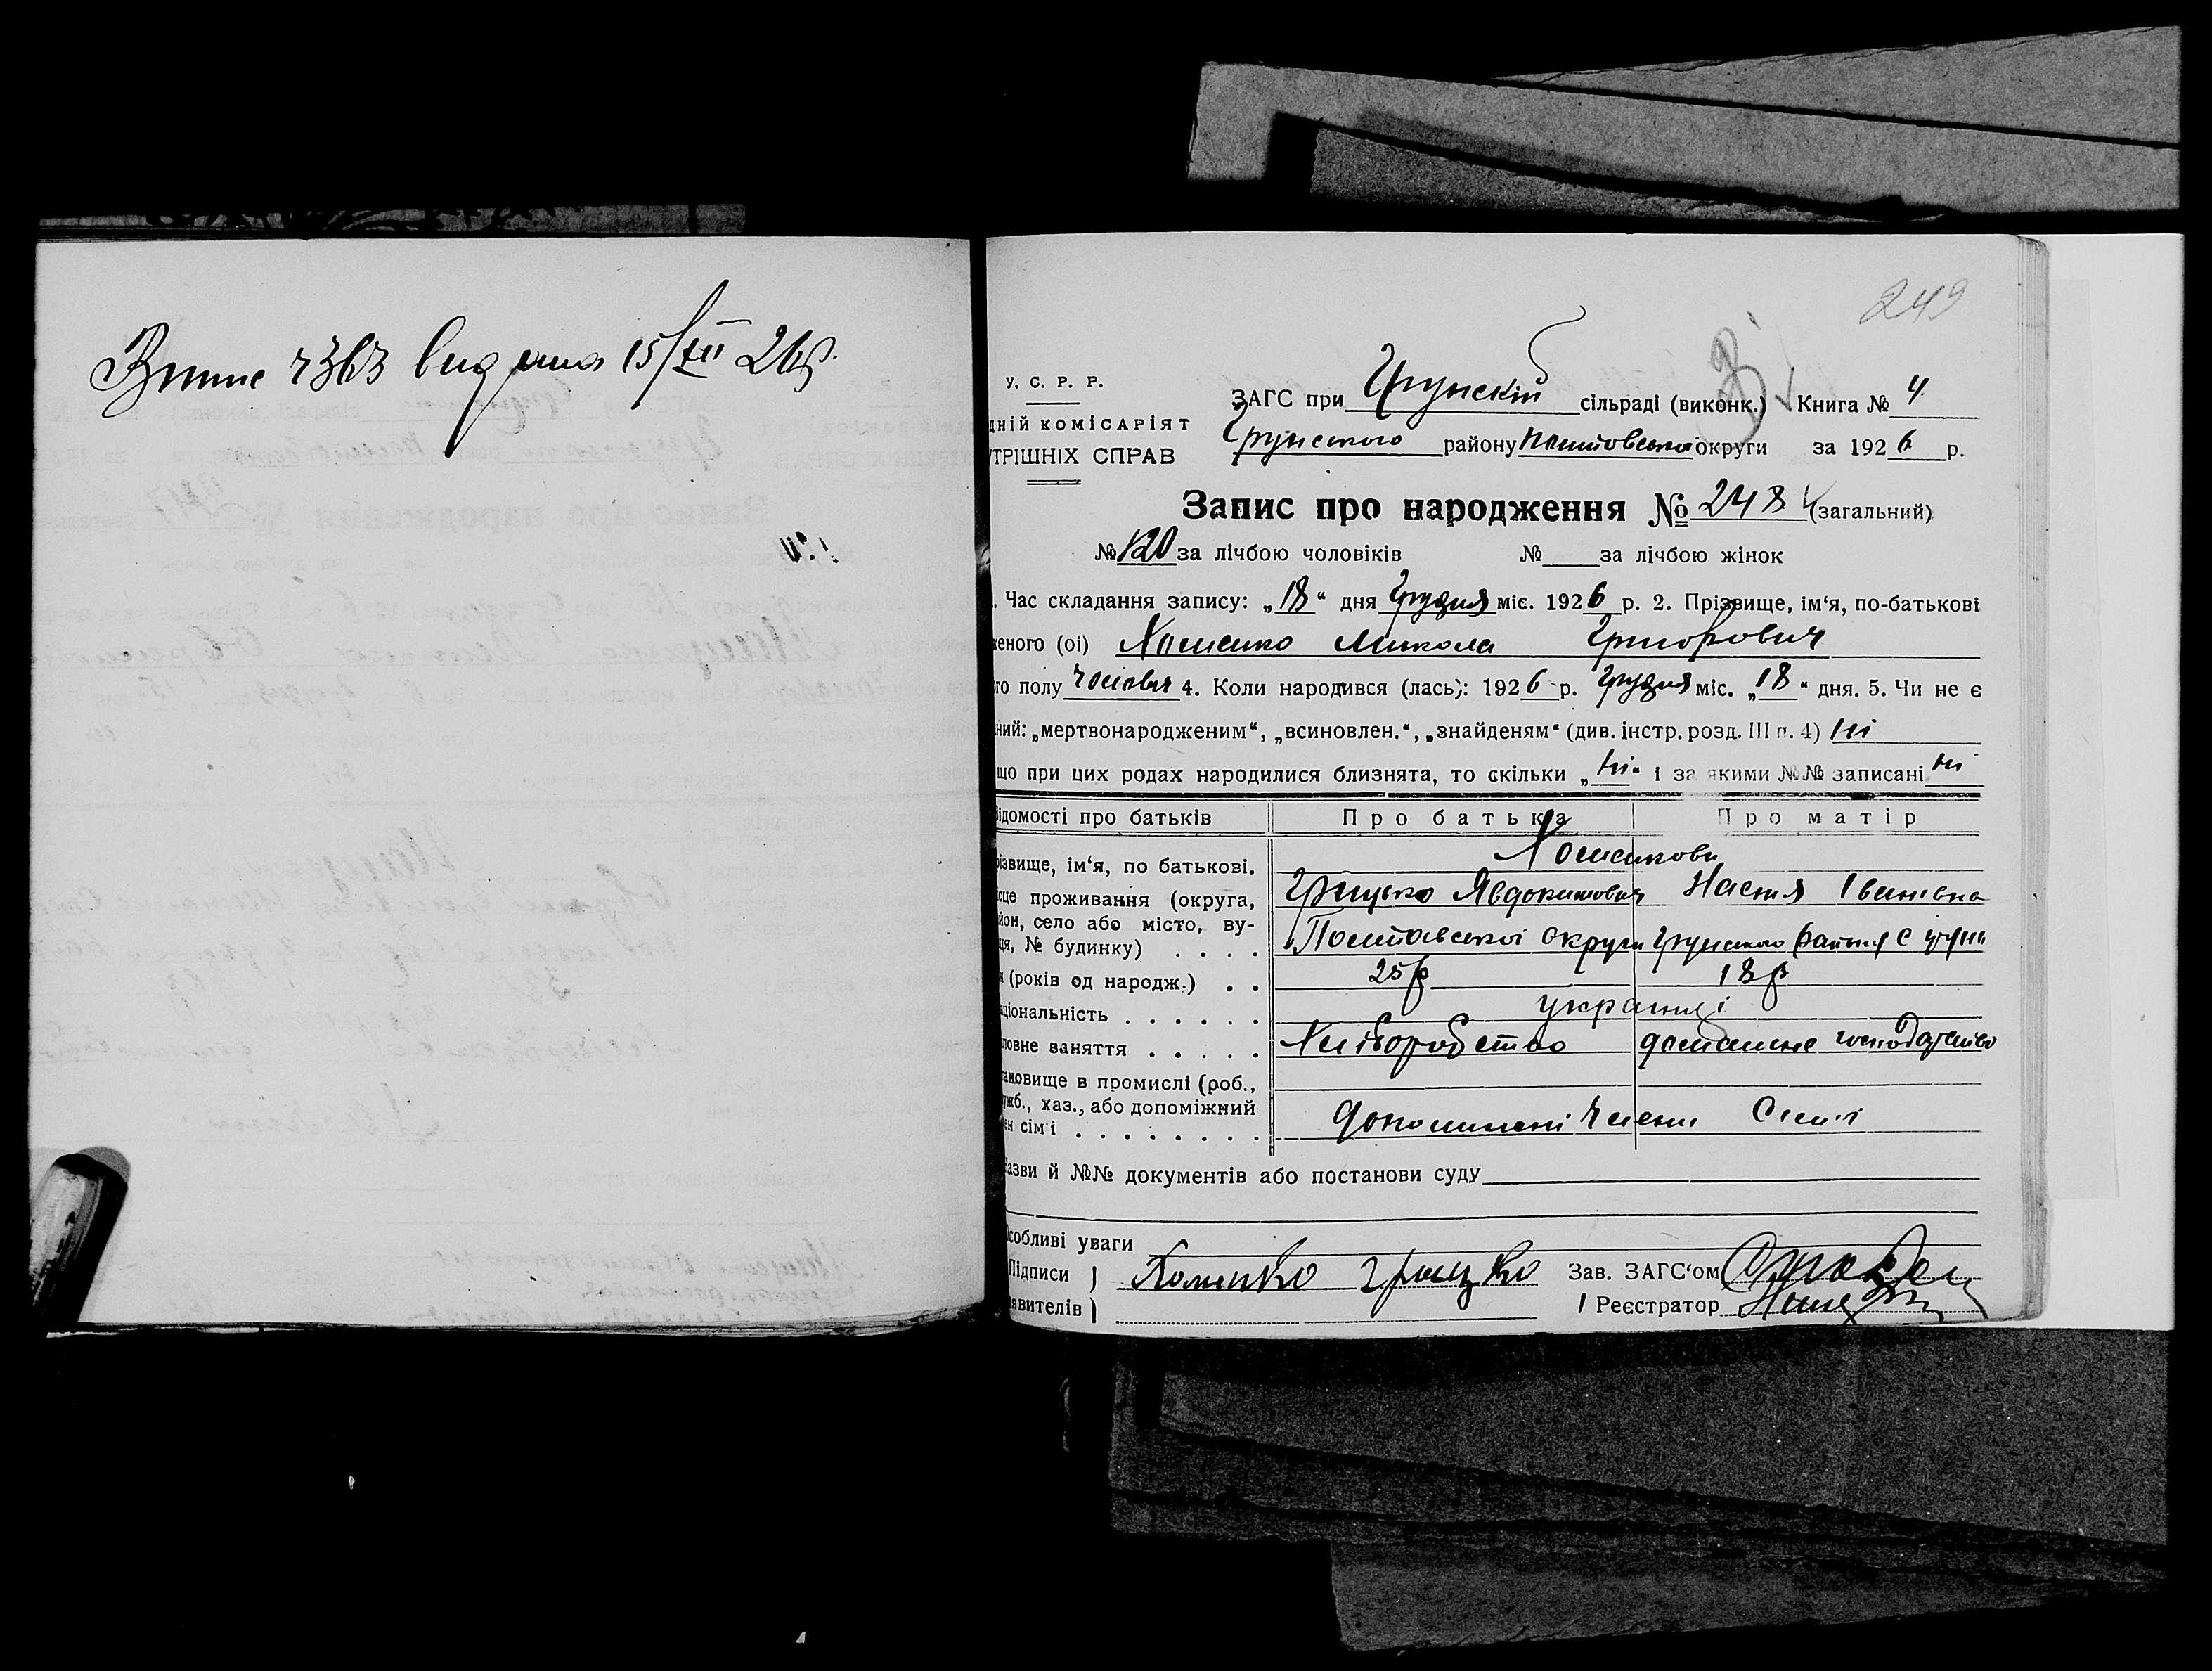 видана 15/XII 26р.
249
У. С. Р. Р.
ЗАГС при Грунскій сільраді (виконк.) Книга № 4
дній комісаріят
Грунського району Полтовської округи за 1926 р.
утрішніх справ
Запис про народження № 248 (загальний)
№ 120 за лічбою чоловіків № за лічбою жінок
Час складання запису: „18“ дня Грудня міс. 1926 р. 2. Прізвище, ім‘я, по-батькові
женого (ої) Микола Григорович
го полу 4. Коли народився (лась): 1926 р. Грудня міс. „18“ дня. 5. Чи не є
ний: „мертвонародженим“, „всиновлен.“, „знайденям“ (див. інстр. розд. III п. 4) ні
що при цих родах народилися близнята, то скільки „ні“ і за якими №№ записані ні
ідомості про батьків Про батька Про матір
різвище, ім‘я, по батькові.
сце проживання (округа, Грицько Явдокимович Настя Іванівна
йон, село або місто, ву-
ця, № будинку) . . . . Полтавської округи Грунського району с
(років од народж.) . . 25р 18р
аціональність . . . . . . українці
ловне заняття . . . . . Хліборобство домашне господарство
тановище в промислі (роб.,
ужб., хаз., або допоміжний
ен сім‘ї . . . . . . . . члени сімї
Назви й №№ документів або постанови суду
Особливі уваги
Підписи ) Грицько Зав. ЗАГС‘ом
явителів ) Реєстратор